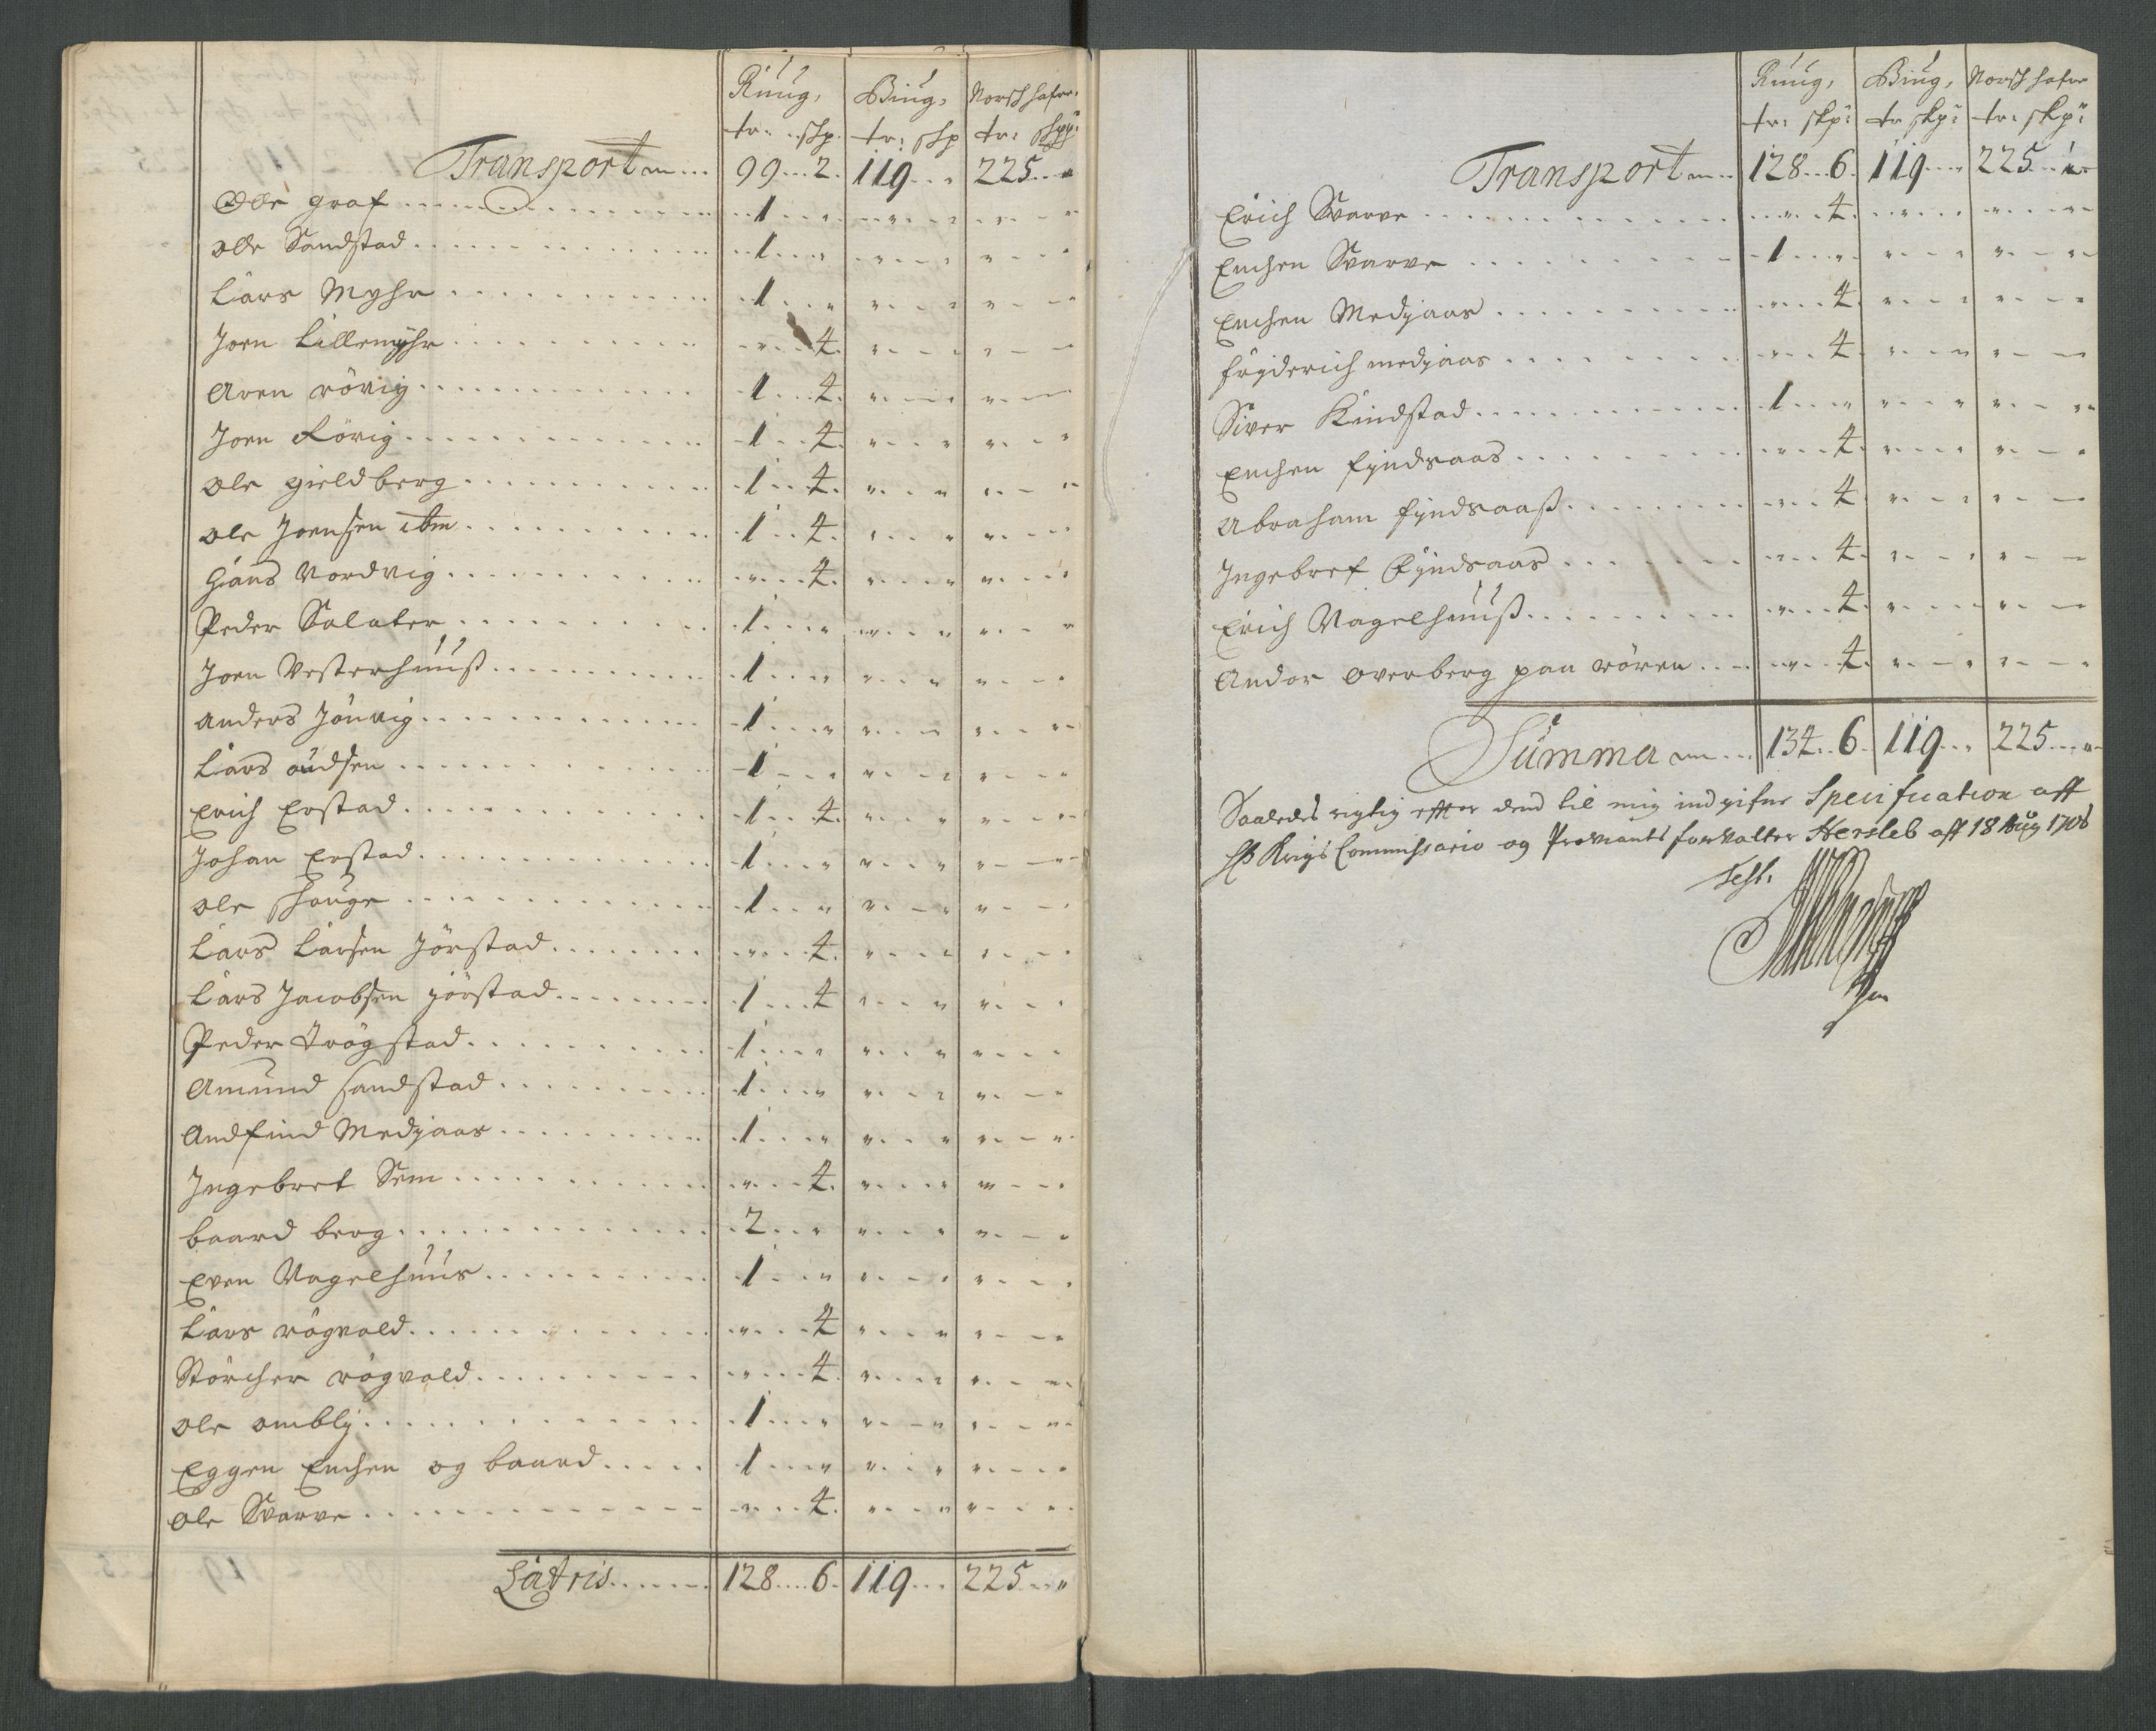 Ruug, Biug, Norsch hafre,
tr: skp. tr: skp tr: skp:
Transport 99 2. 119 " 225 "
Olle graf 1 " " " " "
olle Sandstad 1 " " " " "
Lars Myhr 1 " " " " "
Joen Lillemyhr " 4. " " " "
Aren rövig 1 4. " " " "
Joen Rövig 1 4. " " " "
ole gieldberg 1 4. " " " "
ole Joensen ibm 1 4. " " " "
Hans Nordvig " 4. " " " "
Peder Salater 1 " " " " "
Joen Vesterhuuß 1 " " " " "
anders Jönvig 1 " " " " "
Lars oudsen 1 " " " " "
Erich Erstad 1 4. " " " "
Johan Erstad 1 " " " " "
ole houge 1 " " " " "
Lars Larsen Jörstad " 4. " " " "
Lars Jacobsen jörstad 1 4 " " " "
Peder Trögstad 1 " " " " "
Amund sandstad 1 " " " " "
Andfind Medjaas 1 " " " " "
Ingebret Sem " 4. " " " "
baard berg 2 " " " " "
Even Vagelhuus 1 " " " " "
Lars rögvold " 4 " " " "
Störcher rögvold " 4 " " " "
ole ombly 1 " " " " "
Eggen Enchen og baard 1 " " " " "
ole Svarve " 4. " " " "
Latris 128 6. 119 225 "
Ruug, Biug, Norsch hafre
tr: skp: tr skp: tr: skp:
Transport 128 6. 119 " 225 "
Erich Svarve " 4. " " " "
Enchen Svarve 1 " " " " "
Enchen Medjaas " 4. " " " "
fryderich medjaas " 4. " " " "
Siver Kindstad 1 " " " " "
Enchen fyndsaas " 4. " " " "
Abraham fyndsaaß " 4. " " " "
Ingebret Fyndsaas " 4. " " " "
Erich Vagelhuuß " 4. " " " "
Andor overberg paa rören " 4. " " " "
Summa 134 6. 119 " 225 "
Saaledes rigtig efter dend til mig indgifne Specification aff
Hr Krigs Commissario og Proviantsforvalter Hersleb aff 18 Aug 1706
Test: